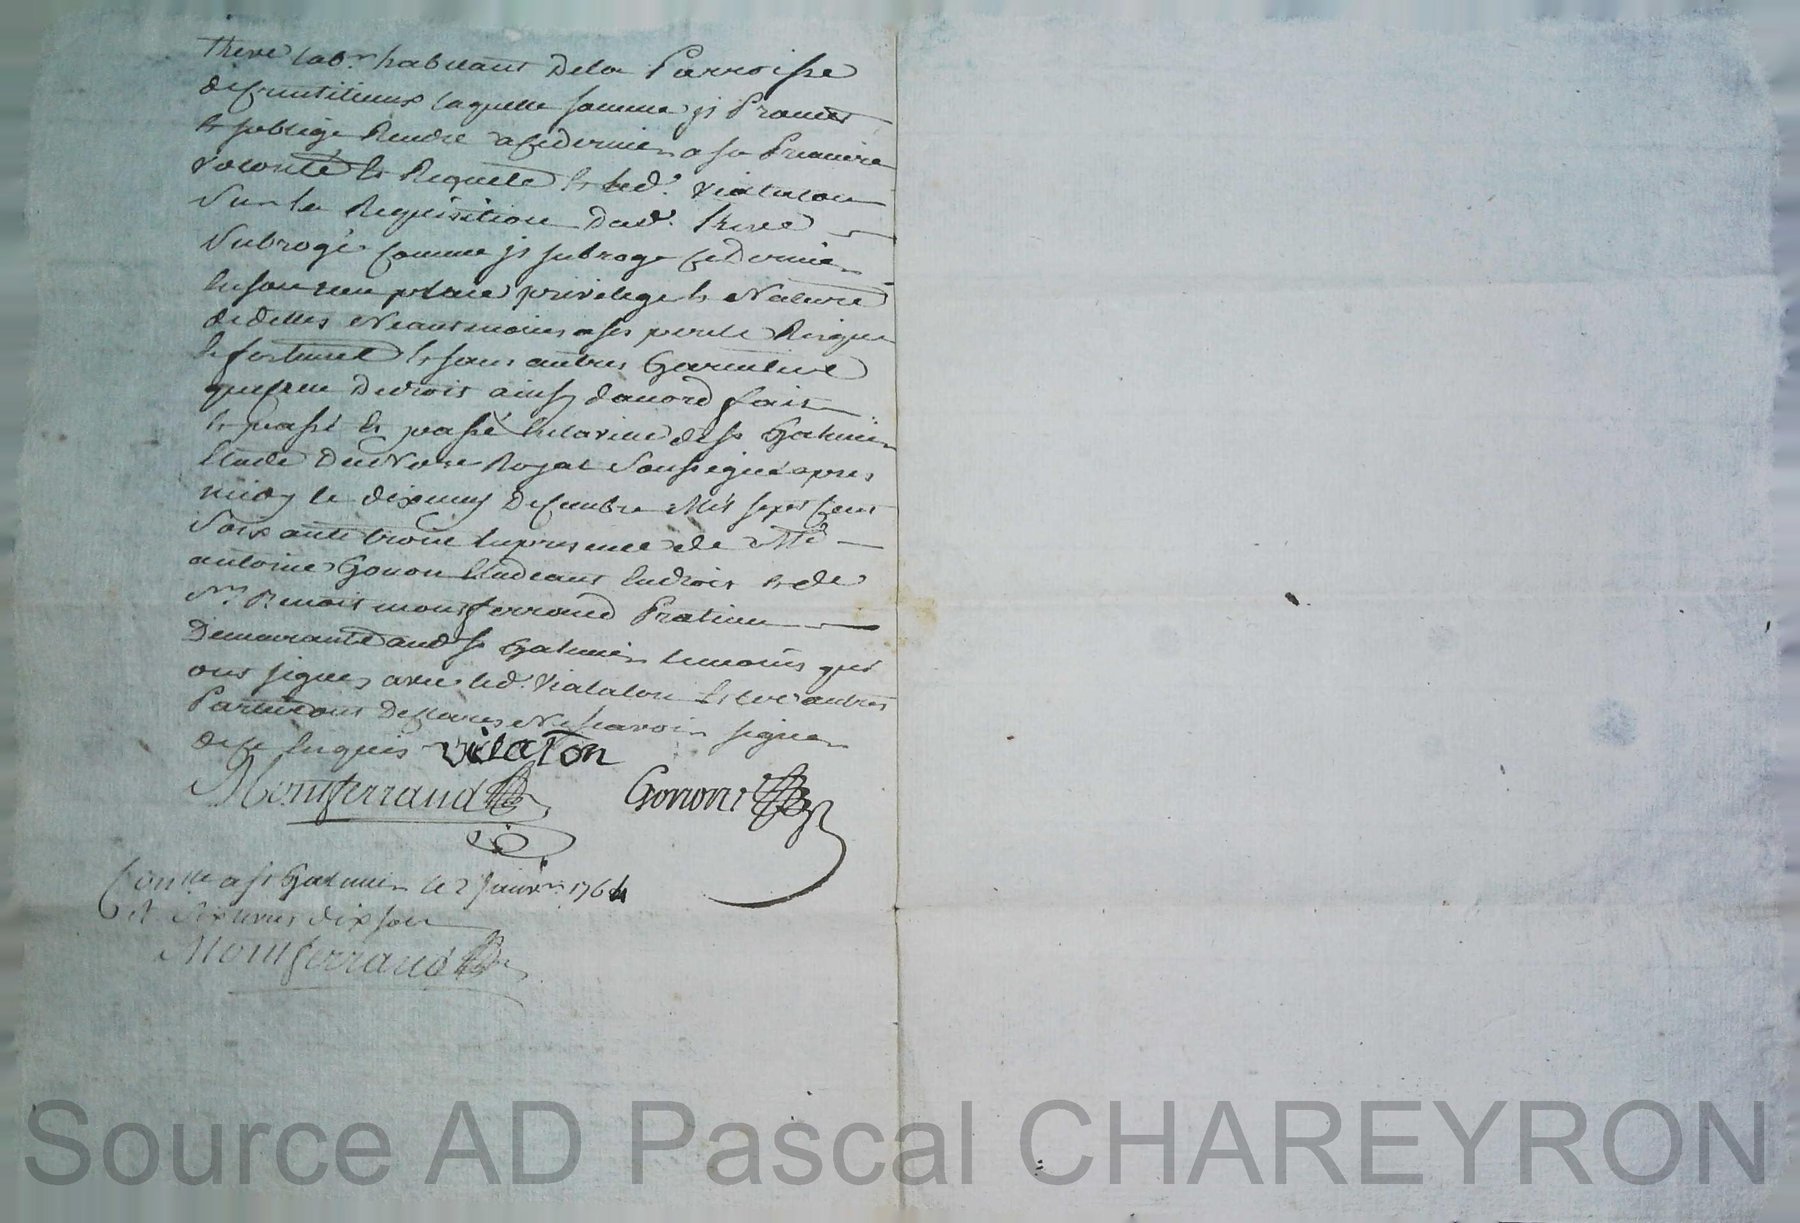 Theve lab.r habitant de la Parroisse
de Cruntilieux laquelle somme il Promet
et soblige Rendre a Cedernier a sa Premiere
volonté et Requete et led. viatalon
Sur la Requisition dud. Theve
Subrogé comme il subroge Cedernier
en son lieu place privilege et Nature
dedettes Neantmoins a ses perils Risque
et fortune et sans autres Garentire
que de Droit ainsy daccord fait
et passé et passé de st Galmier
Etude du No.re Royal Soussigné apres
midy le dix neuf Decembre Mil sept Cent
Soixante trois en presence de M.e
antoine Gonon Etudiant en droit et de
S.r Benoit montferrand Praticien
Demeurants aud st Galmier temoins qui
ont signes avec led. Viatalon et les autres
Parties ont Declarés Ne scavoir signer
de ce enquis vialaton
Montferrand Gonon
Con.lle a st Galmier le 2 Janvier 1764
R. six livres dix sous
Montferrand
Source AD Pascal CHAREYRON